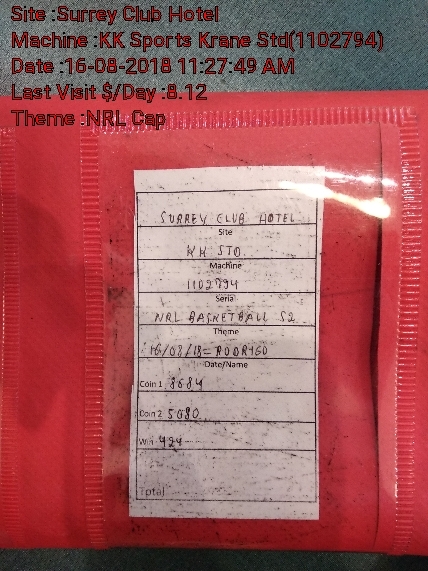 Site :Surrey Club Hotel
Machine :KK Sports Krane Std(1102794)
Date :16-08-2018 11:27:49 AM
Last Visit $/Day :8.12
Theme :NRL Cap
SURREY CLUB HOTEL
Site
KK STD
Machine
1102794
Serial
NRL BASKETBALL S2
Theme
16/08/18 = RODRIGO
Date/Name
Coin 1 8684
Coin 2 5080
Win 424
Total